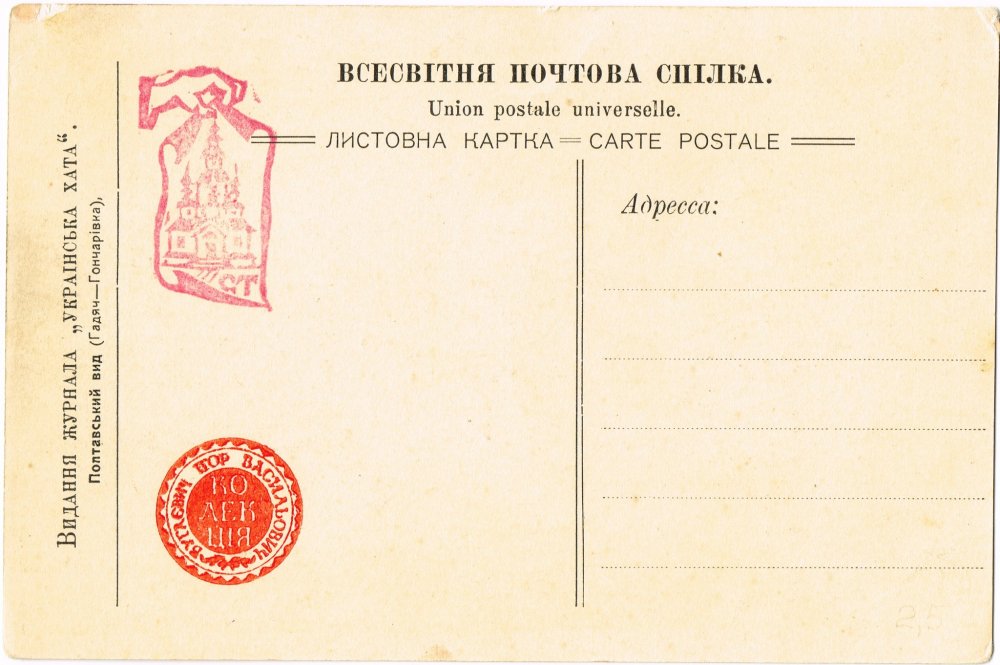 ВСЕСВІТНЯ ПОЧТОВА СПІЛКА.
Union postale universelle.
ЛИСТОВНА КАРТКА = CARTE POSTALE
Адресса:
Видання журнала „Українська Хата“.
Полтавський вид (Гадяч—Гончарівка),
СТ
ВУГЛЄВИЧ ІГОР ВАСИЛЬОВИЧ
КО
ЛЕК
ЦІЯ
2,5